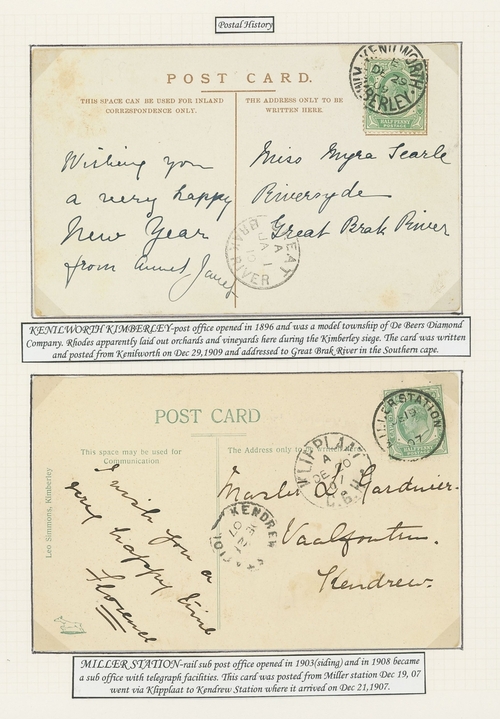 Postal History
POST CARD.
THIS SPACE CAN BE USED FOR INLAND
CORRESPONDENCE ONLY.
THE ADDRESS ONLY TO BE
WRITTEN HERE.
KENILWORTH
KIMBERLEY
DE 29
09
HALFPENNY
POSTAGE
Wishing you
a very happy
New Year
from Aunt Janet
Miss Myra Searle
Riversyde
Great Brak River
GREAT
BRAK RIVER
A
JA 1
10
KENILWORTH KIMBERLEY-post office opened in 1896 and was a model township of De Beers Diamond
Company. Rhodes apparently laid out orchards and vineyards here during the Kimberley siege. The card was written
and posted from Kenilworth on Dec 29,1909 and addressed to Great Brak River in the Southern cape.
POST CARD
This space may be used for
Communication
The Address only to
Leo Simmons, Kimberley
MILLER STATION
07
KLIPPLAAT
A
DE 20
07
C.G.H.
KENDREW
I wish you a
very happy time
Florence
Master Gardner.
Vaalfontein.
Kendrew.
MILLER STATION-rail sub post office opened in 1903(siding) and in 1908 became
a sub office with telegraph facilities. This card was posted from Miller station Dec 19, 07
went via Klipplaat to Kendrew Station where it arrived on Dec 21,1907.